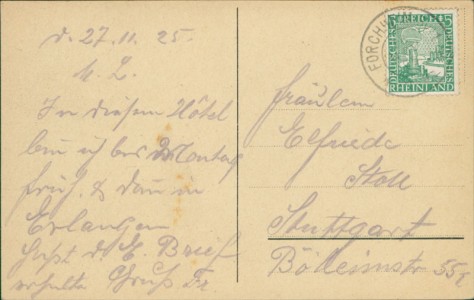 d. 27.11.25.
M. L.
In diesem Hôtel
bin ich bis Montag
früh. & dann in
Erlangen
hast d. E. Brief
erhalten Gruß Fr.
FORCHHEIM
DEUTSCHES REICH
5 5
DEUTSCHES
RHEINLAND
Fräulein
Elfriede
Stoll
Stuttgart
Böheimstr 55